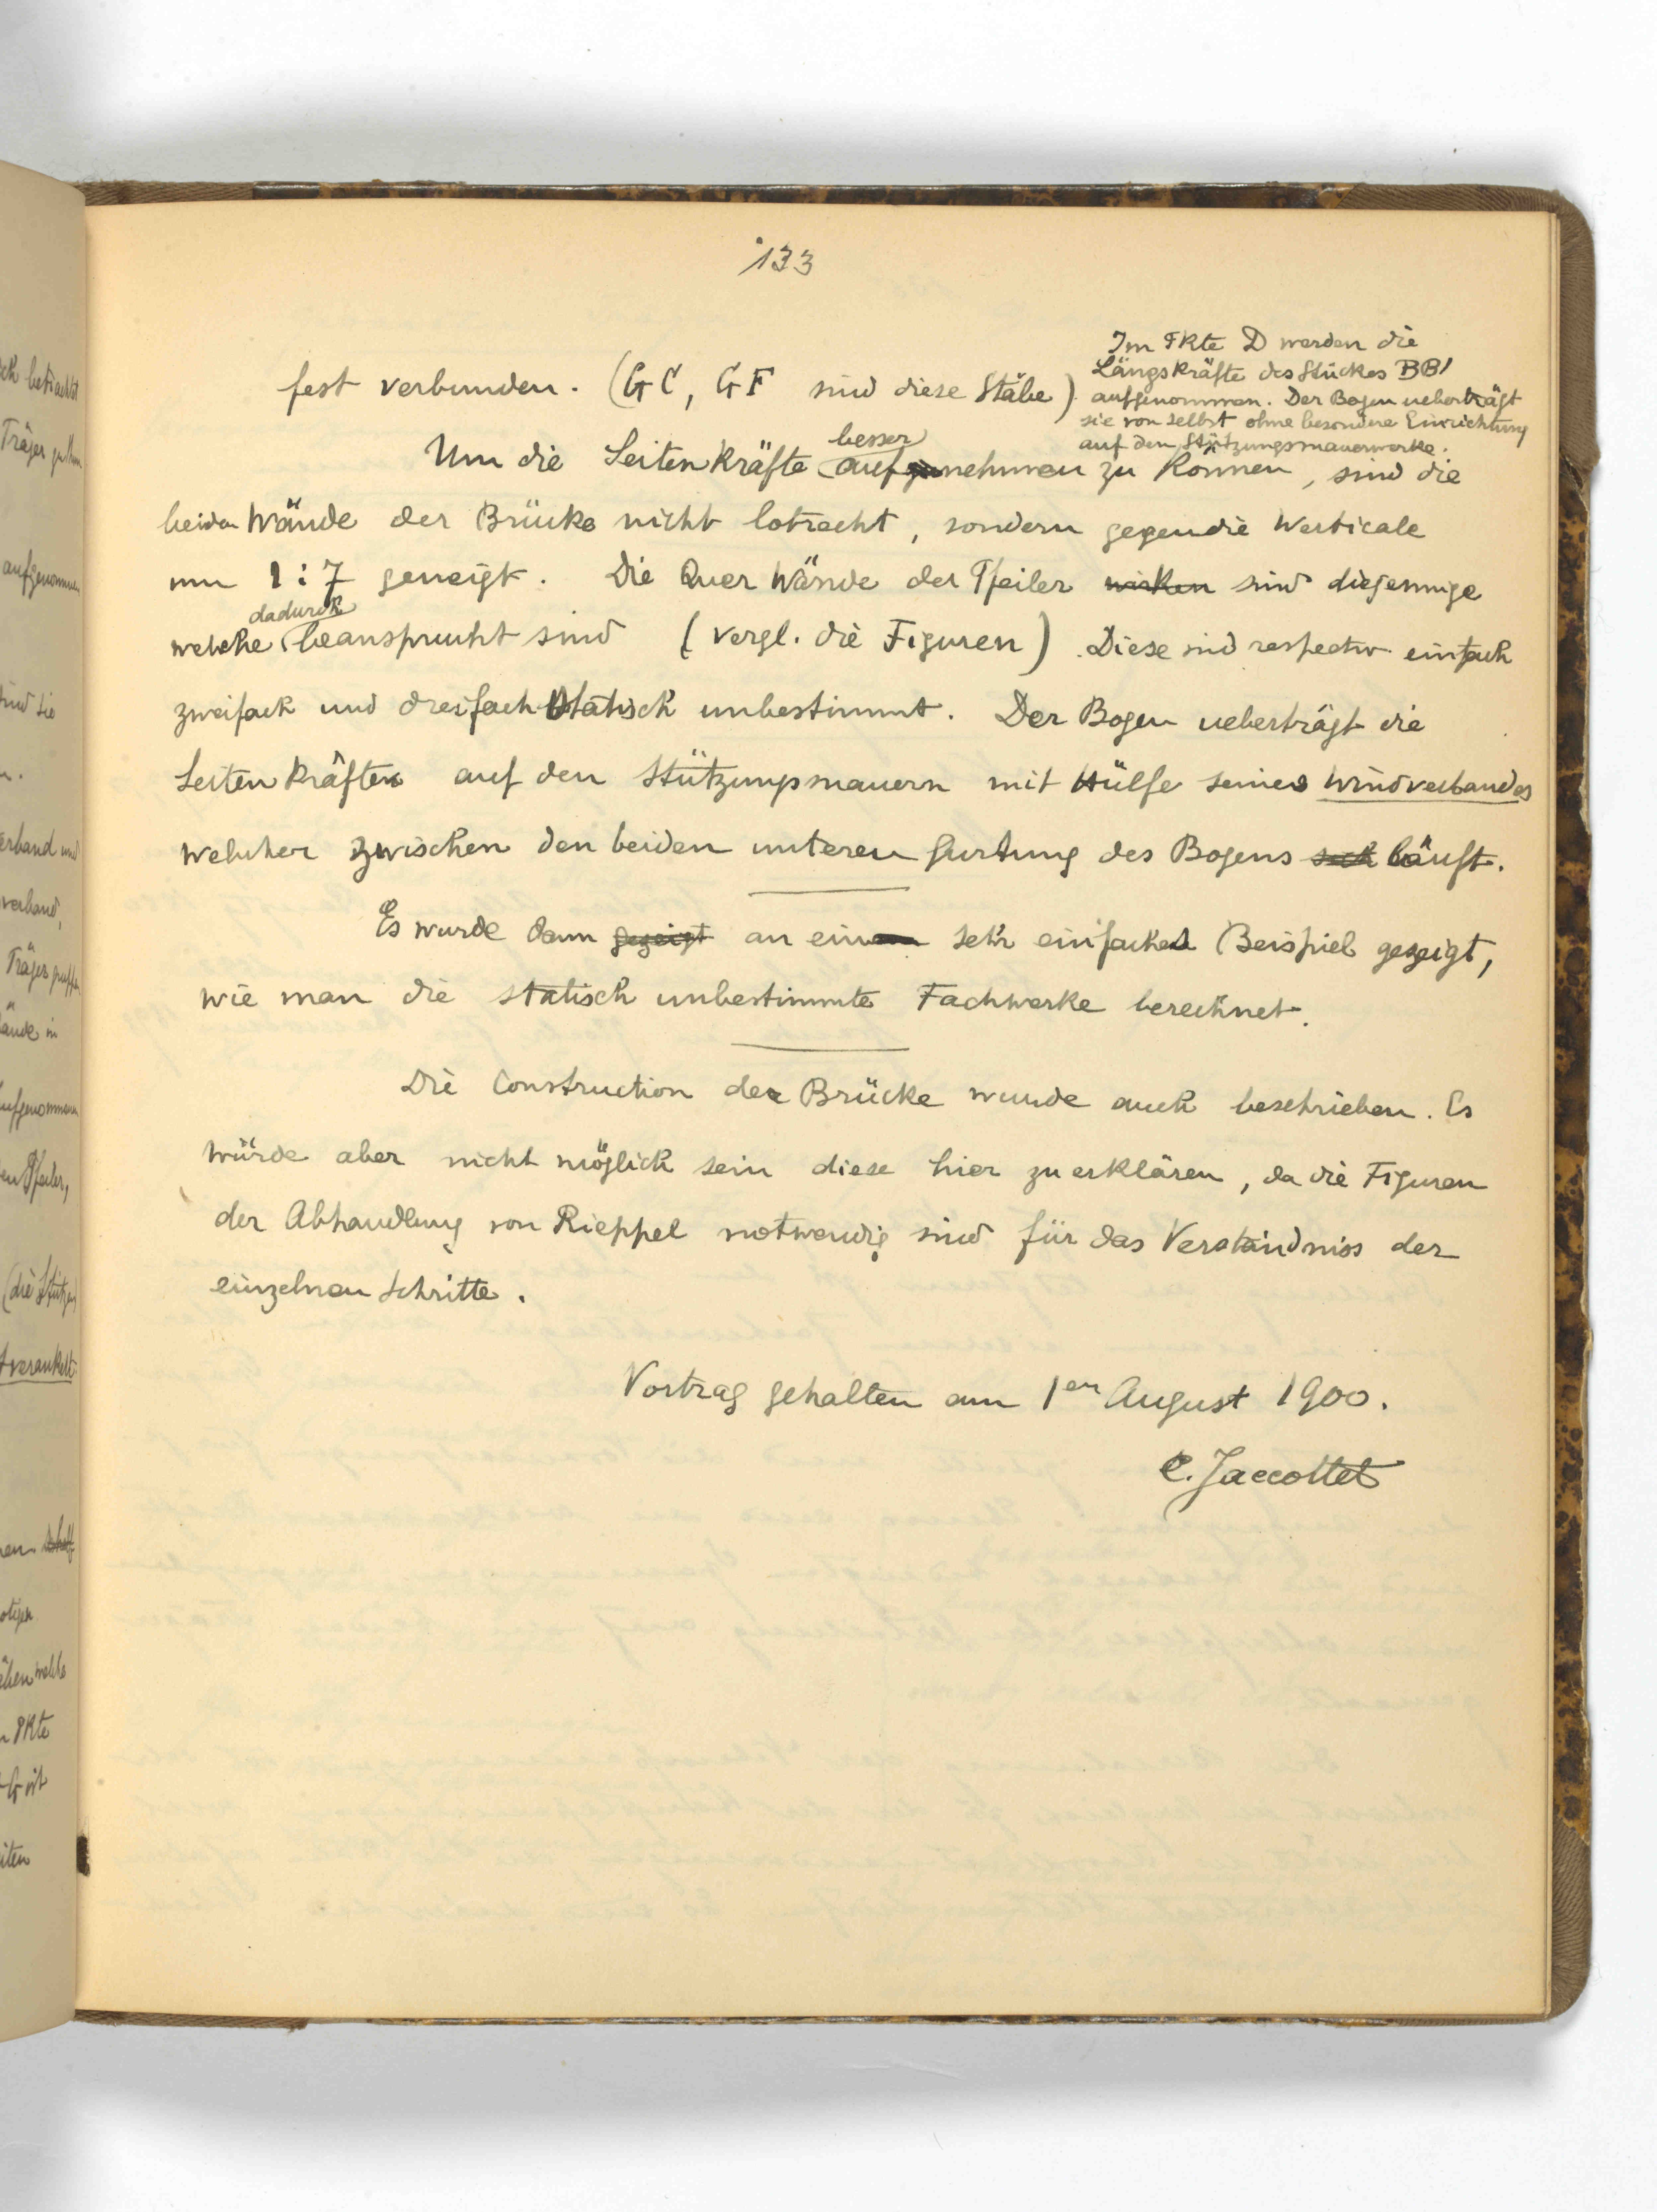 133
fest verbunden. (GC, GF sind diese Stäbe)
Im Pkte D werden die
Längskräfte des Stückes BB'
aufgenommen. Der Bogen ueberträgt
sie von selbst ohne besondere Einrichtung
auf den Stützungsmauerwerke.
besser
Um die Seitenkräfte aufnehmen zu können, sind die
beiden Wände der Brücke nicht lotrecht, sondern gegen die Verticale
um 1:7 geneigt. Die Quer Wände der Pfeiler wirken sind diejenige
dadurch
welche beansprucht sind (vergl. die Figuren). Diese sind respectiv einfach
zweifach und dreifach statisch unbestimmt. Der Bogen ueberträgt die
Seitenkräften auf den Stützungsmauern mit Hülfe seines Windverbandes
welcher zwischen den beiden unteren Gurtung des Bogens sich läuft.
Es wurde dann gezeigt an ein sehr einfaches Beispiel gezeigt,
wie man die statisch unbestimmte Fachwerke berechnet.
Die Construction der Brücke wurde auch beschrieben. Es
würde aber nicht möglich sein diese hier zu erklären, da die Figuren
der Abhandlung von Rieppel notwendig sind für das Verständniss der
einzelnen Schritte.
Vortrag gehalten am 1en August 1900.
C. Jaccottet